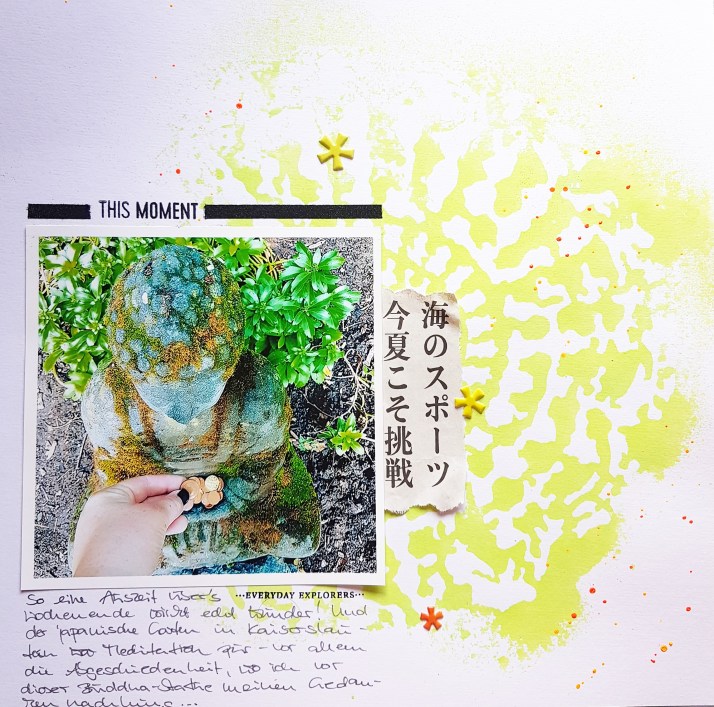 THIS MOMENT
海のスポーツ
今夏こそ挑戦
···EVERYDAY EXPLORERS···
So eine Auszeit über's
Wochenende wirkt echt Wunder! Und
der japanische Garten in Kaiserslau-
tern war Meditation pur - vor allem
die Abgeschiedenheit, wo ich vor
dieser Buddha-Statue meinen Gedan-
ken nachhing...